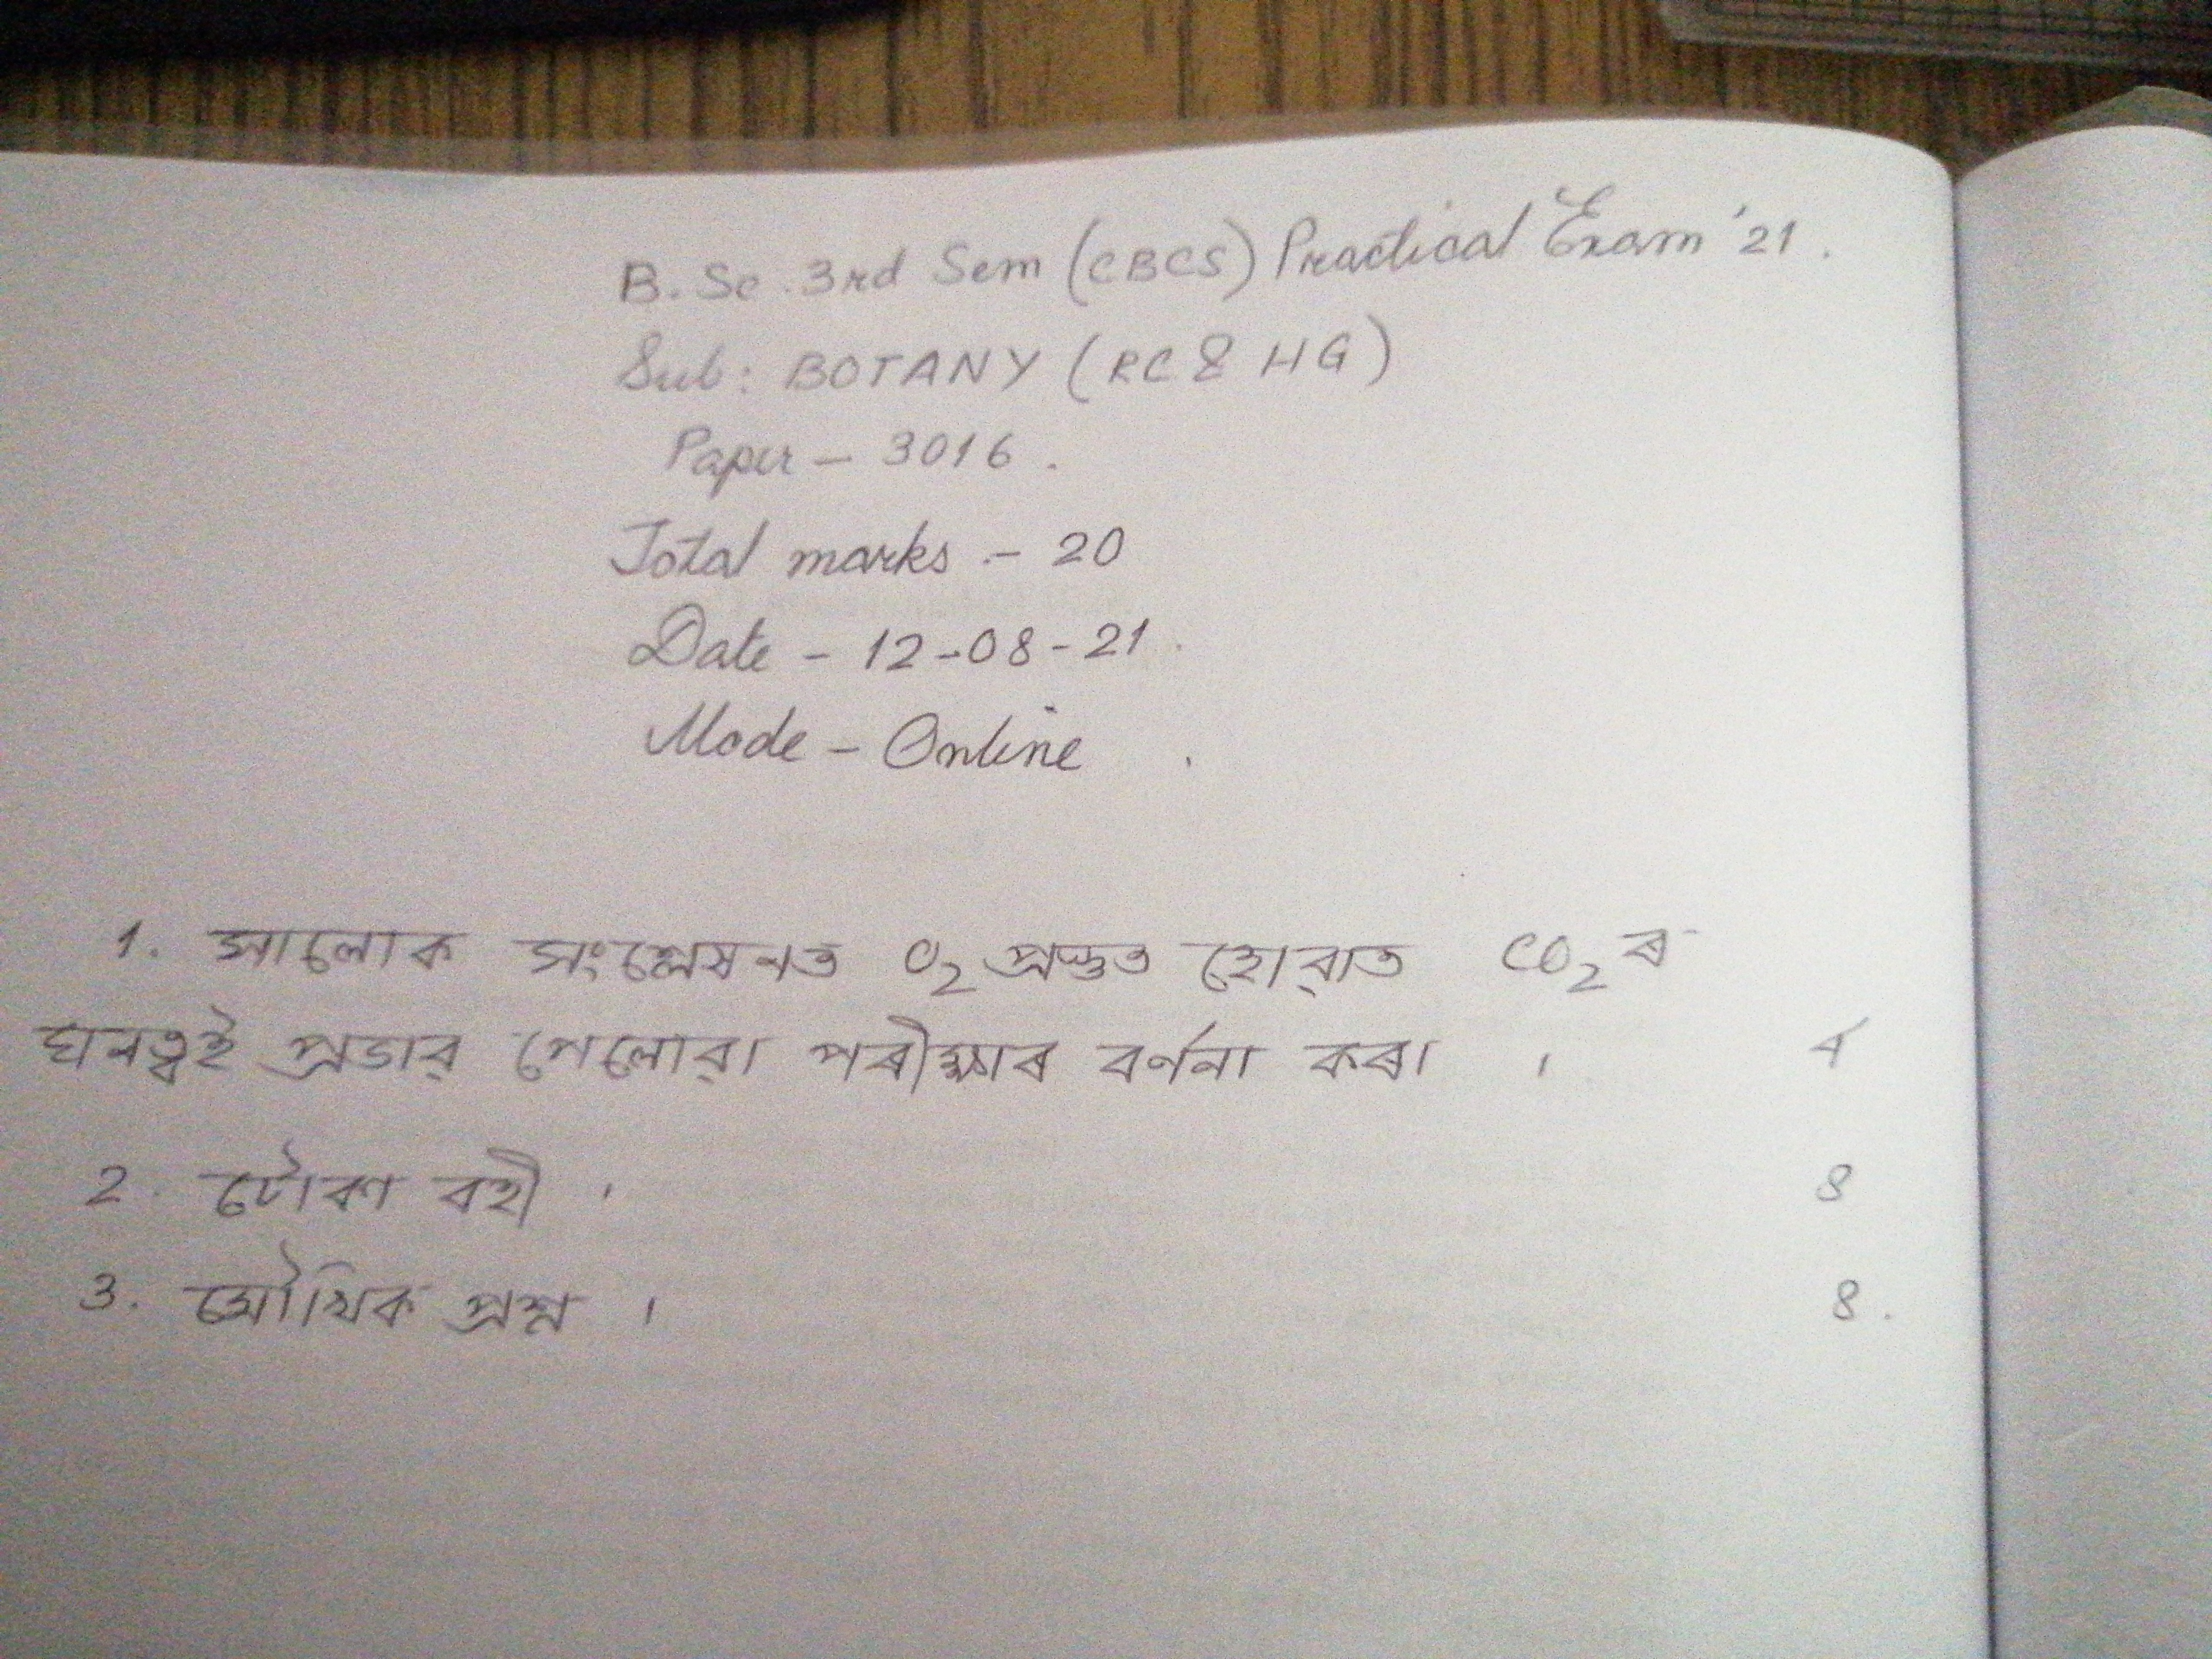 B.Sc. 3rd Sem (CBCS) Practical Exam '21.
Sub: BOTANY (RC & HG)
Paper – 3016.
Total marks – 20
Date – 12-08-21.
Mode – Online
1. সালোক সংশ্লেষনত O₂ প্ৰস্তুত হোৱাত CO₂ৰ
ঘনত্বই প্ৰভাৱ পেলোৱা পৰীক্ষাৰ বৰ্ণনা কৰা । 4
2. টোকা বহী । 8
3. মৌখিক প্ৰশ্ন । 8.